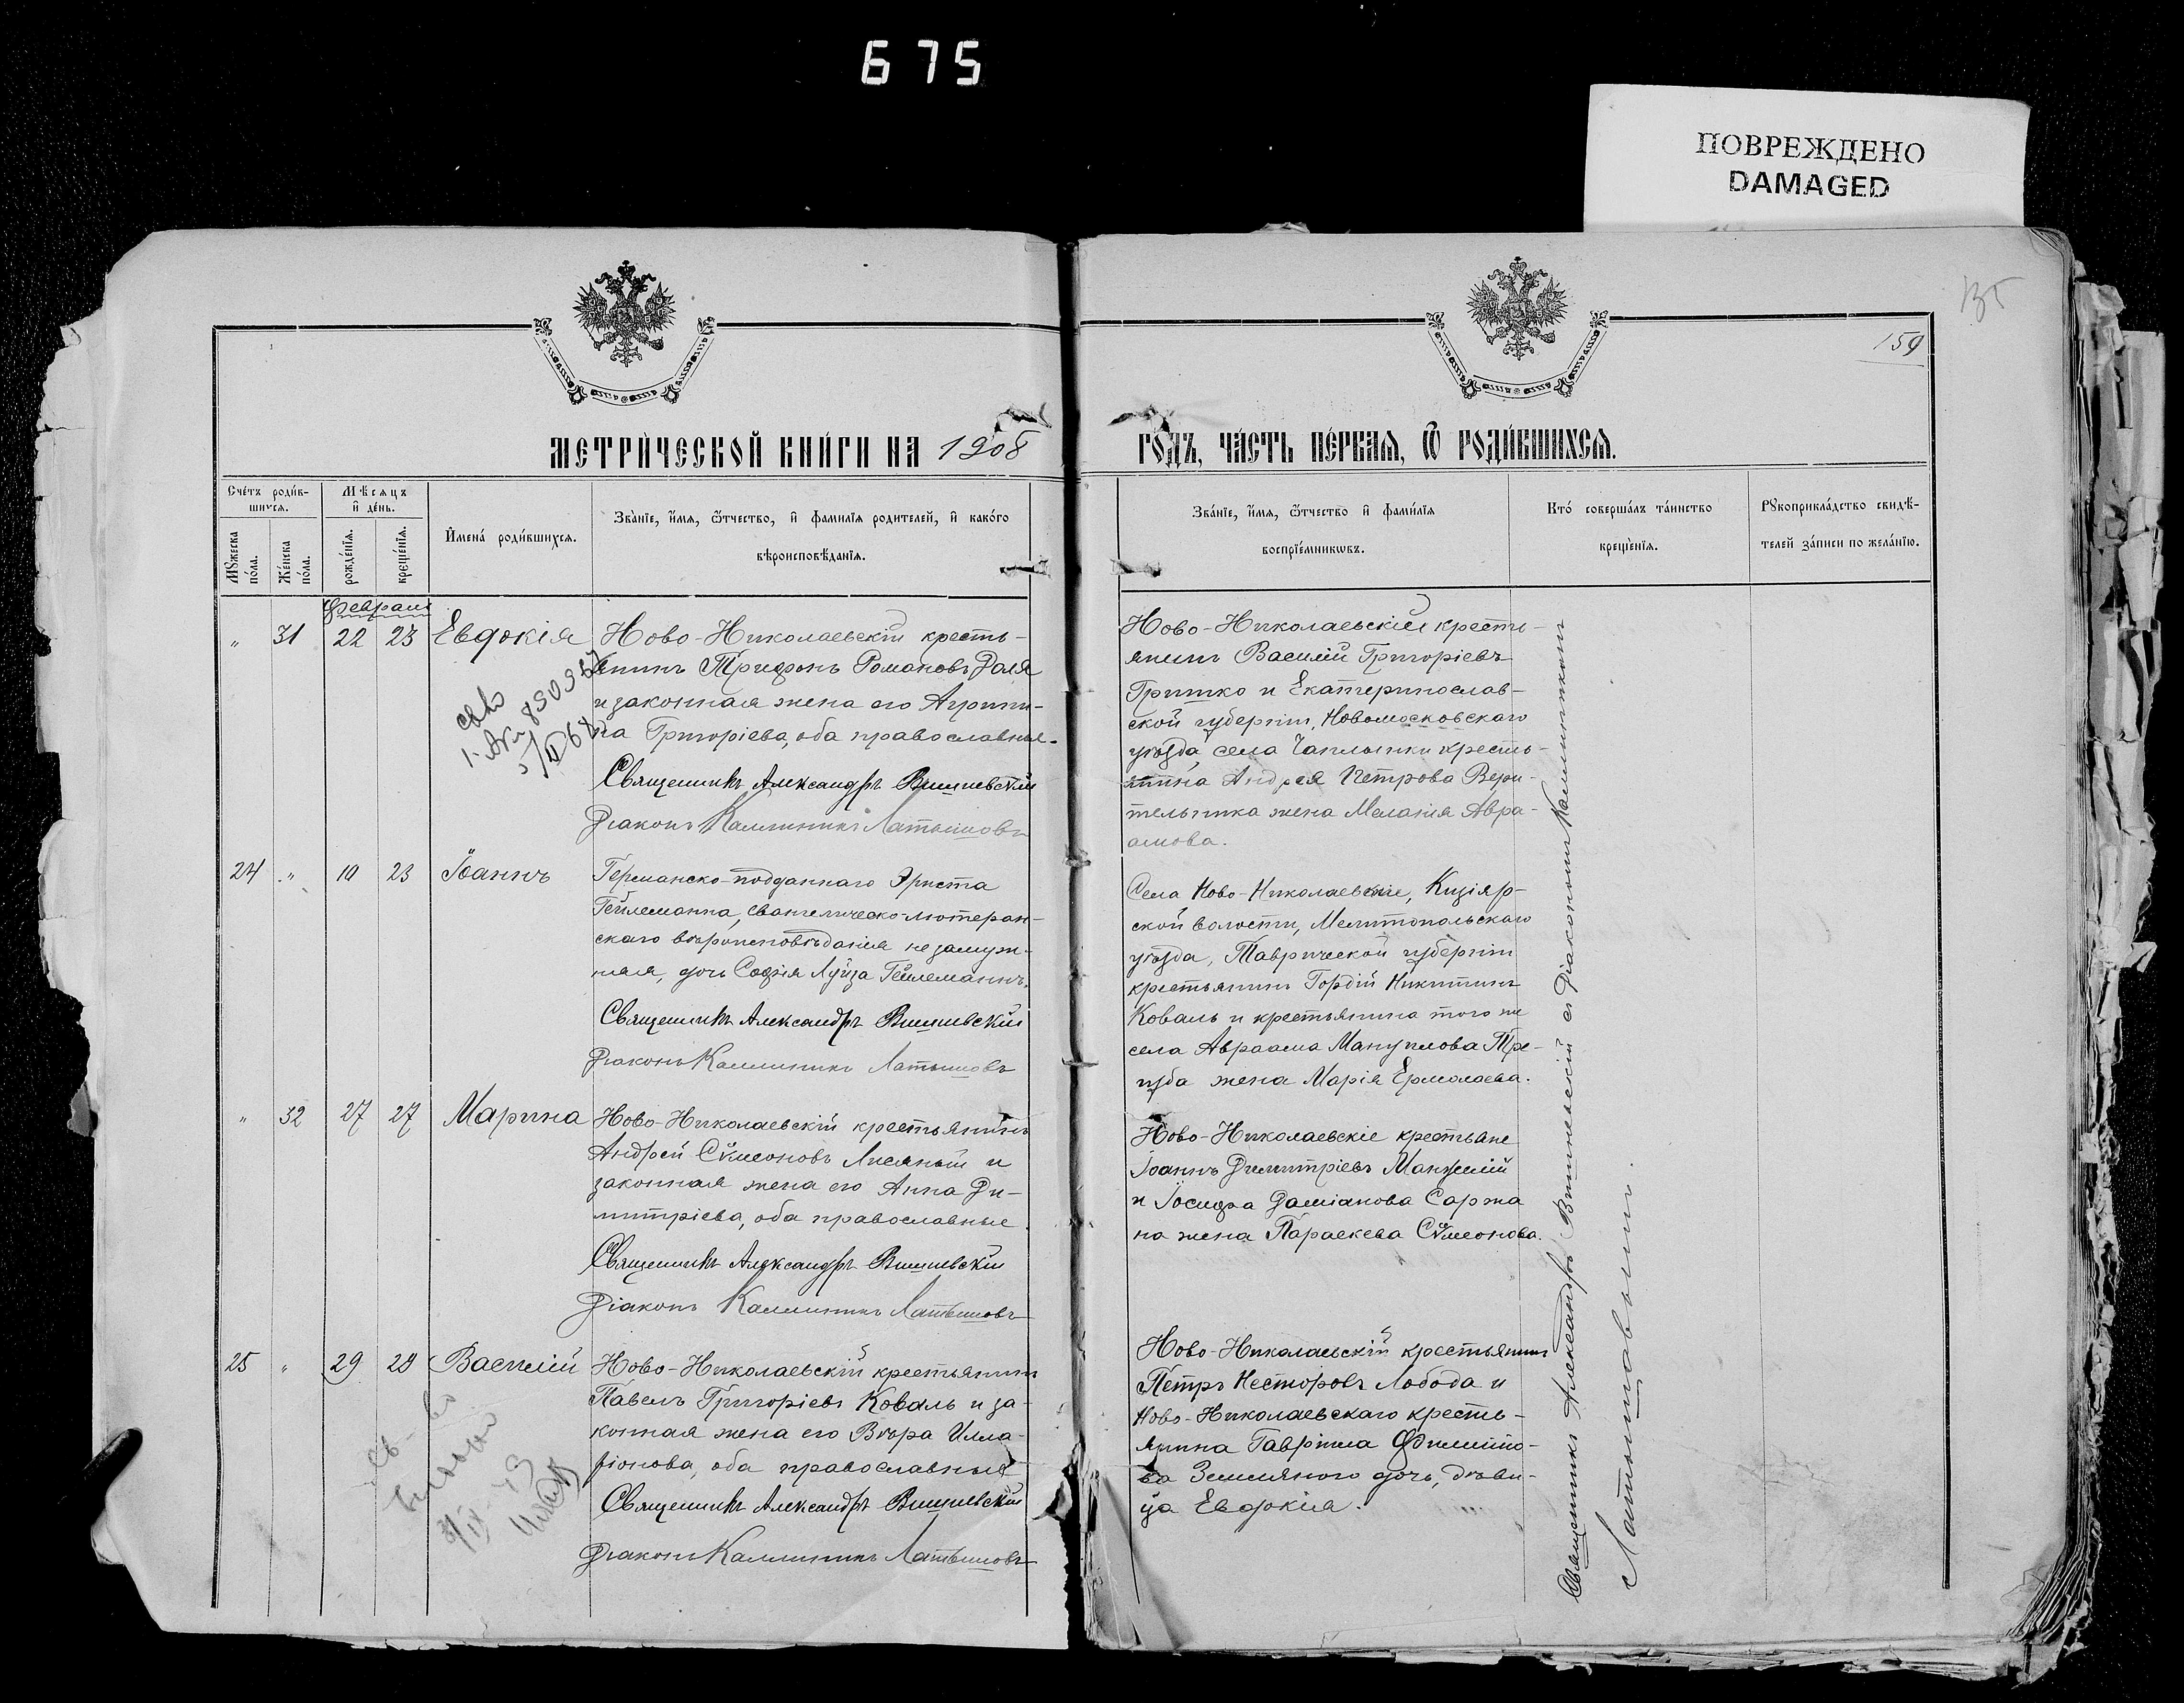 675
ПОВРЕЖДЕНО
DAMAGED
135
159
МЕТРИ́ЧЕСКОЙ КНИ́ГИ НА 1908
ГО́ДЪ, ЧА́СТЬ ПЕ́РВАѦ, Ѿ РОДИ́ВШИХСѦ.
Сче́тъ роди́в-
шихся.
Мѣсяцъ
и҆ де́нь.
Мꙋжеска
по́ла.
Же́нска
по́ла.
рожде́нїѧ.
креще́нїѧ.
И҆мена́ роди́вшихсѧ.
Зва́нїе, и҆́мѧ, ѻ҆́тчество, и҆ фами́лїѧ родителей, и҆ како́гѡ
вѣроисповѣ́данїѧ.
Зва́нїе, и҆́мѧ, ѻ҆́тчество и҆ фами́лїѧ
воспрїе́мникѡвъ.
Кто́ соверша́лъ та́инство
креще́нїѧ.
Рꙋкоприкла́дство свидѣ́-
телей за́писи по жела́нїю.
Февраль
" 31 22 23 Евдокія
Ново-Николаевскій кресть-
янинъ Трифонъ Романовъ Даля
и законная жена его Агриппи-
на Григоріева, оба православные.
Священникъ Александръ Вишневскій
Діаконъ Каллиникъ Латышовъ
св-во
5/II 68
Ново-Николаевскій кресть-
янинъ Василій Григоріевъ
Гришко и Екатеринослав-
ской губерніи, Новомосковскаго
уѣзда села Чаплынки кресть-
янина Андрея Петрова Вери-
тельника жена Меланія Авра-
амова.
24 " 10 23 Іоаннъ
Германско-подданнаго Эрнста
Гейлеманна, евангелическо-лютеран-
скаго вѣроисповѣданія незамуж-
няя, дочь Софія Луиза Гейлеманнъ.
Священникъ Александръ Вишневскій
Діаконъ Каллиникъ Латышовъ
Села Ново-Николаевскіе, Кизіяр-
ской волости, Мелитопольскаго
уѣзда, Таврической губерніи
крестьянинъ Гордій Никитинъ
Коваль и крестьянина того же
села Авраама Мануилова Тре-
губа жена Марія Ермолаева.
" 32 27 27 Марина
Ново-Николаевскій крестьянинъ
Андрей Сѵмеоновъ Лисяный и
законная жена его Анна Ди-
митріева, оба православные.
Священникъ Александръ Вишневскій
Діаконъ Каллиникъ Латышовъ
Ново-Николаевскіе крестьяне
Іоаннъ Димитріевъ Манжелій
и Іосифа Даміанова Саржа
на жена Параскева Сѵмеонова.
25 " 29 29 Василій
Ново-Николаевскій крестьянинъ
Павелъ Григоріевъ Коваль и за-
конная жена его Вѣра Илла-
ріонова, оба православные
Священникъ Александръ Вишневскій
Діаконъ Каллиникъ Латышовъ
Ново-Николаевскій крестьянинъ
Петръ Несторовъ Лобода и
Ново-Николаевскаго кресть-
янина Гавріила Филиппо-
ва Земляного дочь, дѣви-
ца Евдокія.
Священникъ Александръ Вишневскій съ Діакономъ Каллиникомъ
Латышовымъ.